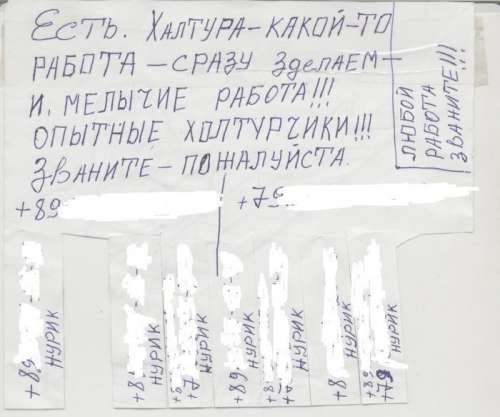 Есть. ХАЛТУРА-КАКОЙ-ТО
РАБОТА - СРАЗУ ЗДЕЛАЕМ-
И. МЕЛЫЧИЕ РАБОТА!!!
ОПЫТНЫЕ ХОЛТУРЧИКИ!!!
ЗВАНИТЕ - ПОЖАЛУЙСТА.
ЛЮБОЙ
РАБОТА
ЗВАНИТЕ!!!
+89
+79
+89
НУРИК
+89
НУРИК
+8
+7
НУРИК
+89
НУРИК
+8
+7
НУРИК
+8
НУРИК
+89
+79
НУРИК